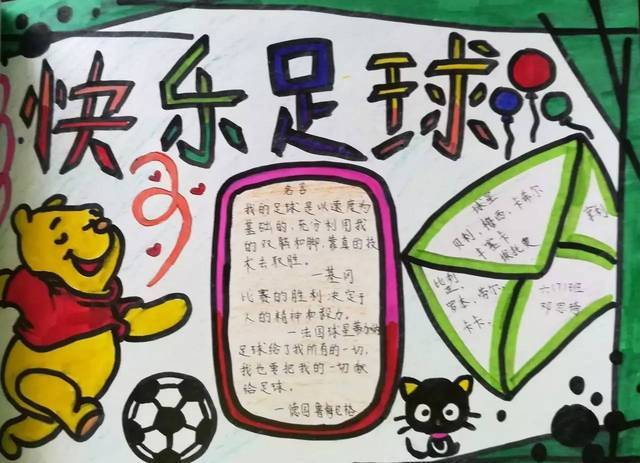 快乐足球
名言
我的足球是以速度为
基础的,充分利用我
的双脚和脚,靠真的技
术去取胜。
—基冈
比赛的胜利决定于
人的精神和毅力。
—法国球星
足球给了我所有的一切,
我也要把我的一切献
给足球。
—德国
贝利、梅西、卡希尔
卡塞卡
比利
卡卡
六(7)班